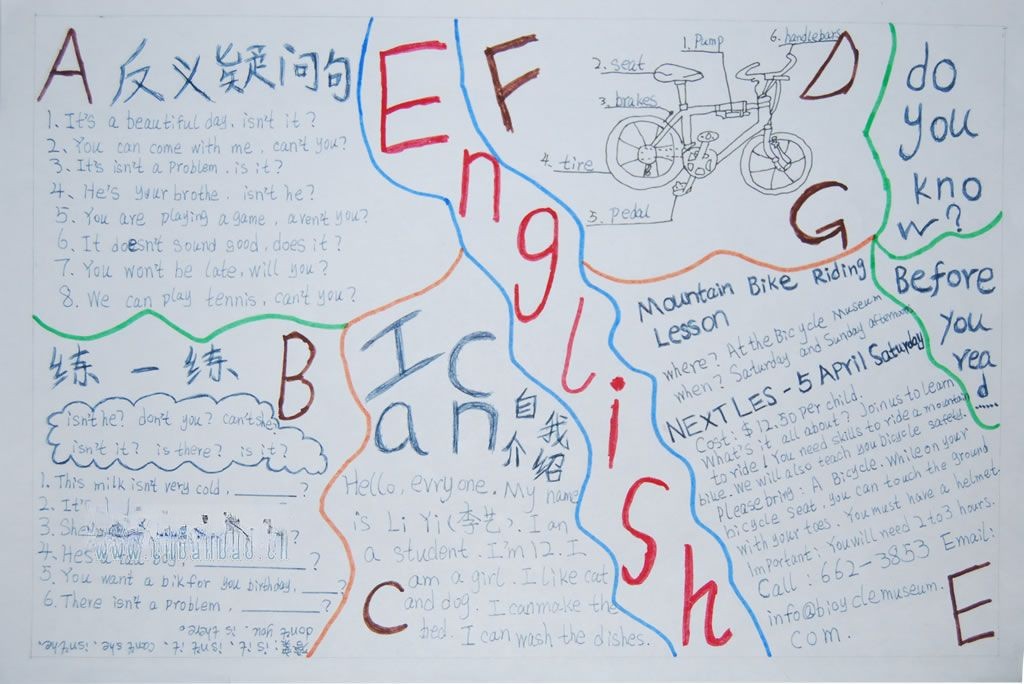 A 反义疑问句
1. It's a beautiful day, isn't it?
2. You can come with me, can't you?
3. It's isn't a problem, is it?
4. He's your brothe, isn't he?
5. You are playing a game, aren't you?
6. It doesn't sound good, does it?
7. You won't be late, will you?
8. We can play tennis, can't you?
练一练
B
isn't he? don't you? can't she
isn't it? is there? is it?
1. This milk isn't very cold, ______?
2. It's
3. She ?
4. He's a ______?
5. You want a bik for you birthday, ____?
6. There isn't a problem, ______?
答案: is it. isn't it. can't she. isn't he.
don't you. is there.
English
I can
自我介绍
Hello, evryone. My name
is Li Yi(李艺). I an
a student. I'm 12. I
am a girl. I like cat
and dog. I can make the
bed. I can wash the dishes.
C
F
1. Pump
2. seat
3. brakes
4. tire
5. pedal
6. handlebars
D
G
Mountain Bike Riding
Lesson
where? At the Bicycle Museum
when? Saturday and Sunday afternoon
NEXT LES - 5 April Saturday
Cost: $12.50 per child.
What's it all about? Join us to learn
to ride! You need skills to ride a mountain
bike. We will also teach you bicycle safety.
Please bring: A Bicycle. While on your
bicycle seat, you can touch the ground
with your toes. You must have a helmet.
Important: You will need 2 to 3 hours.
Call: 662-3853 Email:
info@bioyclemuseum.
com.
E
do
you
kno
w?
Before
you
rea
d......